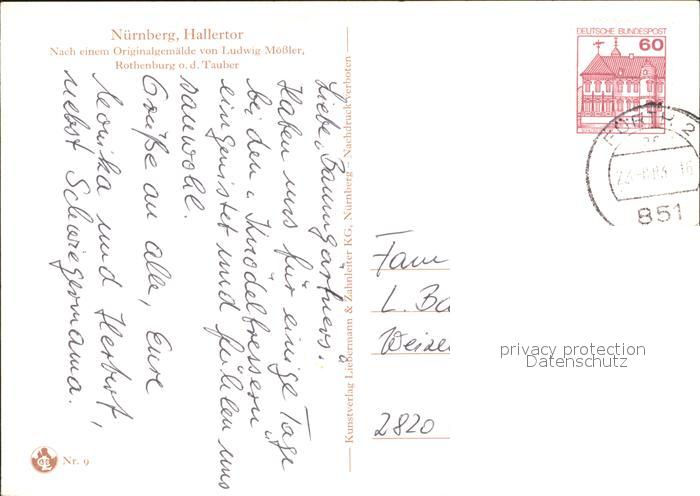 Nürnberg, Hallertor
Nach einem Originalgemälde von Ludwig Mößler,
Rothenburg o. d. Tauber
Liebe „Baumgärtners".
Haben uns für einige Tage
bei den „Knödelfressern"
eingenistet und fühlen uns
sauwohl.
Grüße an alle, Eure
Monika und Herbert,
nebst Schwiegermama.
Nr. 9
Kunstverlag Liebermann & Zahnleiter KG, Nürnberg - Nachdruck verboten
DEUTSCHE BUNDESPOST
60
FÜRTH 2
851
Fam
L. Ba
2820
privacy protection
Datenschutz